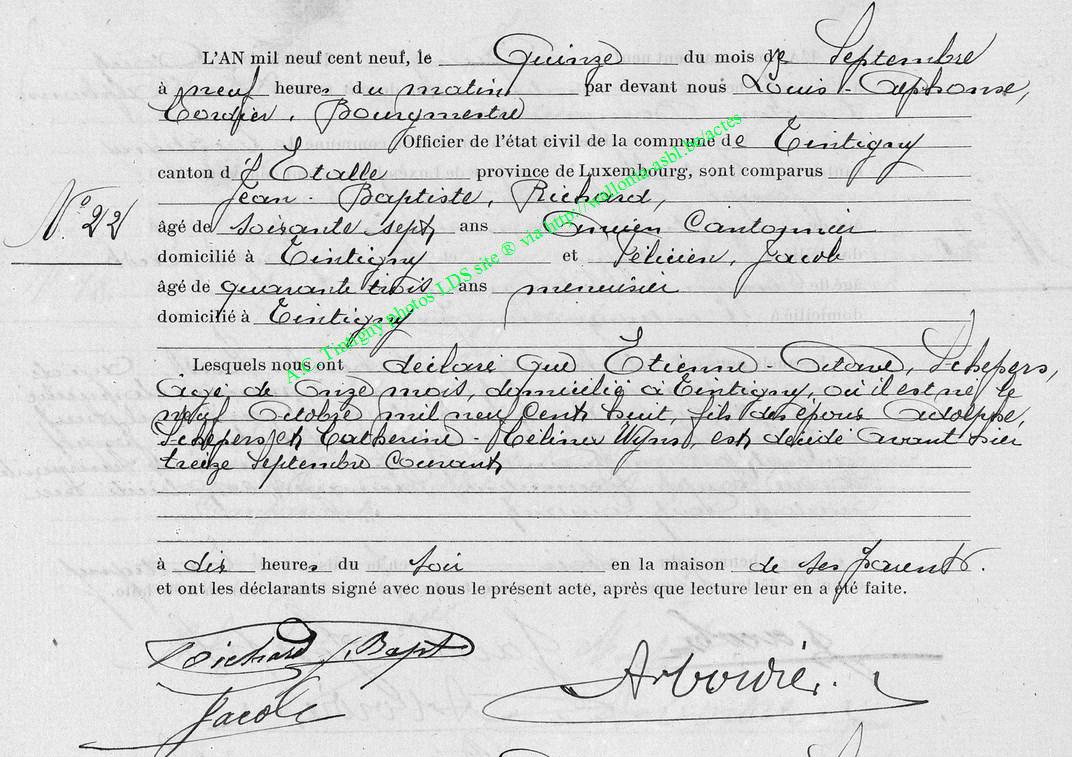 L'AN mil neuf cent neuf, le Quinze du mois de Septembre
à neuf heures du matin par devant nous Louis-Alphonse,
Cordier, Bourgmestre
Officier de l'état civil de la commune de Tintigny
canton d'Etalle province de Luxembourg, sont comparus
Jean-Baptiste, Richard,
N.° 22
âgé de soixante sept ans Ancien Cantonnier
domicilié à Tintigny et Félicien, Jacob
âgé de quarante trois ans menuisier
domicilié à Tintigny
Lesquels nous ont déclaré que Etienne-Octave, Schepers,
agé de Onze mois, domicilié à Tintigny, où il est né le
neuf Octobre mil neuf cent huit, fils des époux Adolphe,
Schepers et Catherine-Céline, Wyns, est décédé avant hier
treize Septembre Courant
à dix heures du soir en la maison de ses parents.
et ont les déclarants signé avec nous le présent acte, après que lecture leur en a été faite.
Richard J. Bapt
Jacob
A.C. Tintigny photos LDS site ® via http://wallonia-asbl.be/actes